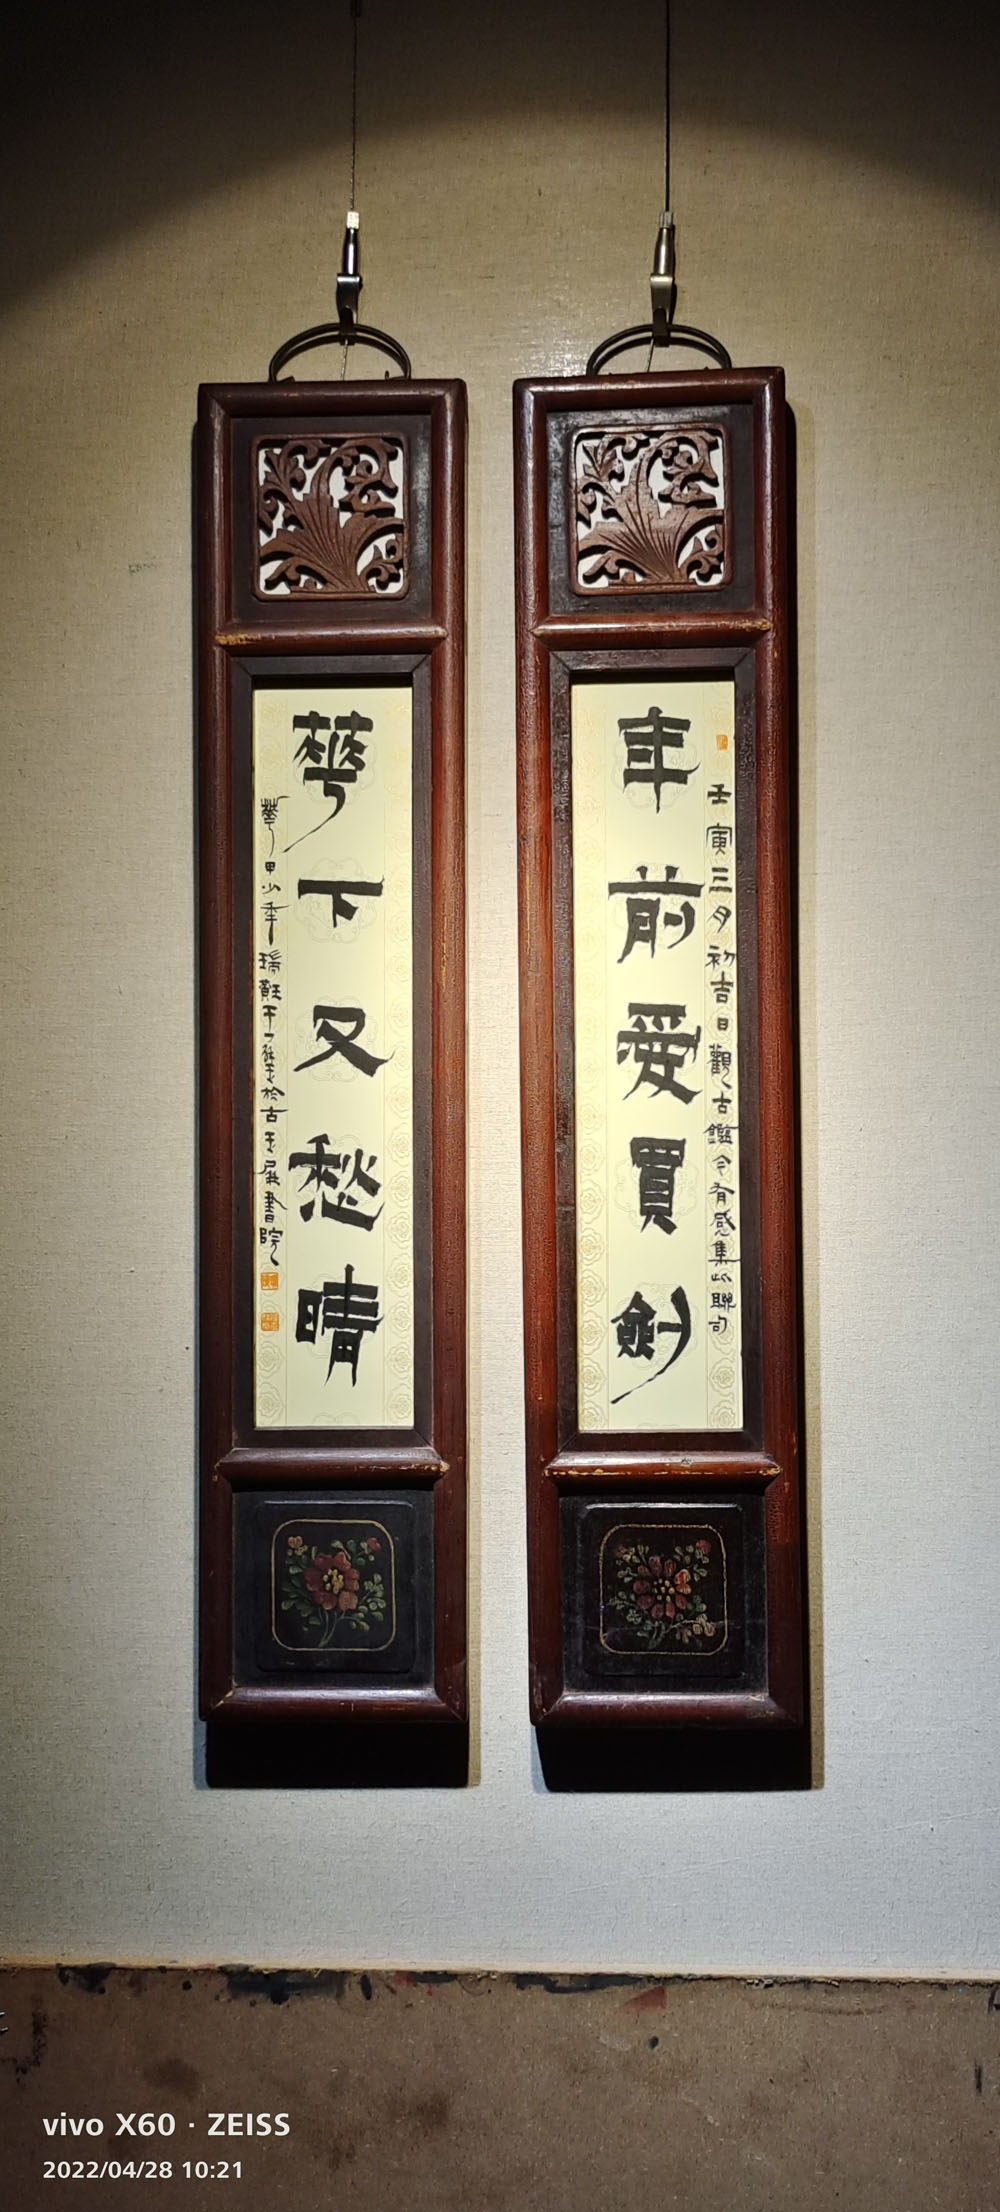 年前愛買劍
壬寅三月初吉日觀古鑑今有感集此聯句
華下又愁晴
華甲少年瑞
於古玉屏書院
vivo X60 · ZEISS
2022/04/28 10:21